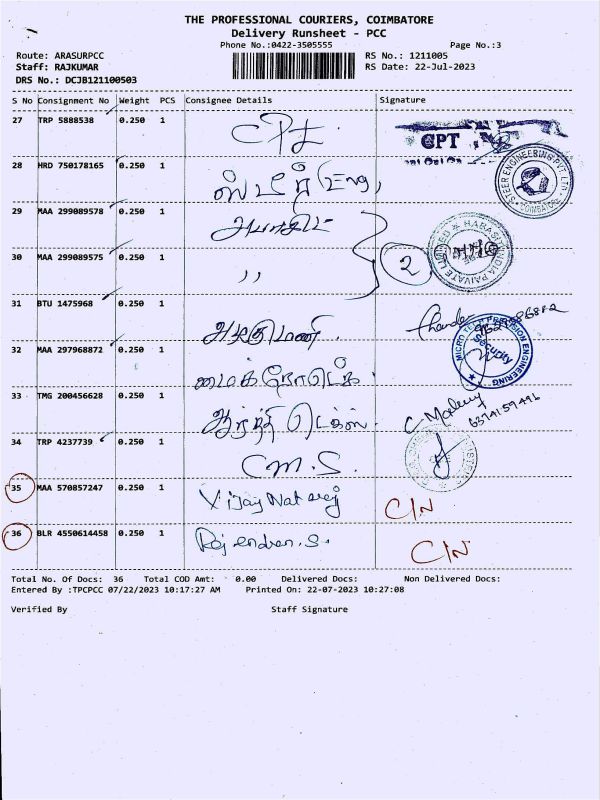 THE PROFESSIONAL COURIERS, COIMBATORE
Delivery Runsheet - PCC
Phone No.:0422-3505555 Page No.:3
Route: ARASURPCC RS No.: 1211005
Staff: RAJKUMAR RS Date: 22-Jul-2023
DRS No.: DCJB121100503
S No Consignment No Weight PCS Consignee Details Signature
27 TRP 5888538 0.250 1 CPT CPT
28 HRD 750178165 0.250 1 ஸ்டீர் (Eng) STEER ENGINEERING PVT LTD COIMBATORE
29 MAA 299089578 0.250 1
30 MAA 299089575 0.250 1 ,, 2 PRIVATE LIMITED
31 BTU 1475968 0.250 1 அழகுமணி
32 MAA 297968872 0.250 1 MICRO PRECISION ENGINEERING Security
33 TMG 200456628 0.250 1 6374159496
34 TRP 4237739 0.250 1 C M . S .
35 MAA 570857247 0.250 1 Vijay Nataraj C/N
36 BLR 4550614458 0.250 1 Rajendran . S . C/N
Total No. Of Docs: 36 Total COD Amt: 0.00 Delivered Docs: Non Delivered Docs:
Entered By :TPCPCC 07/22/2023 10:17:27 AM Printed On: 22-07-2023 10:27:08
Verified By Staff Signature